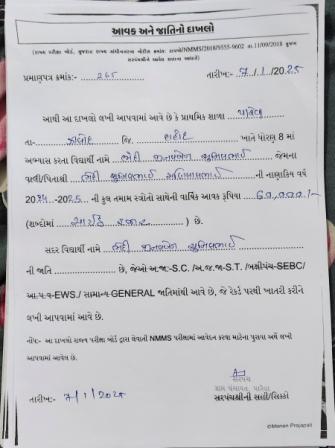 આવક અને જાતિનો દાખલો
(રાજ્ય પરીક્ષા બોર્ડ, ગુજરાત રાજ્ય ગાંધીનગરના નોટીસ ક્રમાંક: રાપબો/NMMS/2018/9555-9602 તા.11/09/2018 મુજબ
સરપંચશ્રીને આવક દાખલા બાબતે)
પ્રમાણપત્ર ક્રમાંક:- 265 તારીખ:- 7/1/2025
આથી આ દાખલો લખી આપવામાં આવે છે કે પ્રાથમિક શાળા
તા- જિ. ખાતે ધોરણ 8 માં
અભ્યાસ કરતા વિદ્યાર્થી નામે જેમના
વાલી/પિતાશ્રી ની નાણાકિય વર્ષ
2024-2025 ની કુલ તમામ સ્ત્રોતો સાથેની વાર્ષિક આવક રૂપિયા 60,000/-
(શબ્દોમાં સાઈઠ હજાર ) છે.
સદર વિદ્યાર્થી નામે
ની જાતિ છે, જેઓ અ.જા-S.C. /અ.જ.જા-S.T. /બક્ષીપંચ-SEBC/
આ.પ.વ-EWS./ સામાન્ય GENERAL જાતિમાંથી આવે છે, જે રેકર્ડ પરથી ખાતરી કરીને
લખી આપવામાં આવે છે.
નોંધ:- આ દાખલો રાજ્ય પરીક્ષા બોર્ડ દ્વારા લેવાતી NMMS પરીક્ષામાં આવેદન કરવા માટેના પુરાવા અર્થે લખી
આપવામાં આવેલ છે.
સરપંચ
ગ્રામ પંચાયત,
તારીખ:- 7/1/2025 સરપંચશ્રીની સહી/સિક્કો
©Manan Prajapati